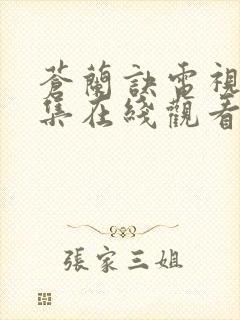 蒼蘭訣電視
集在綫觀看
張家三姐